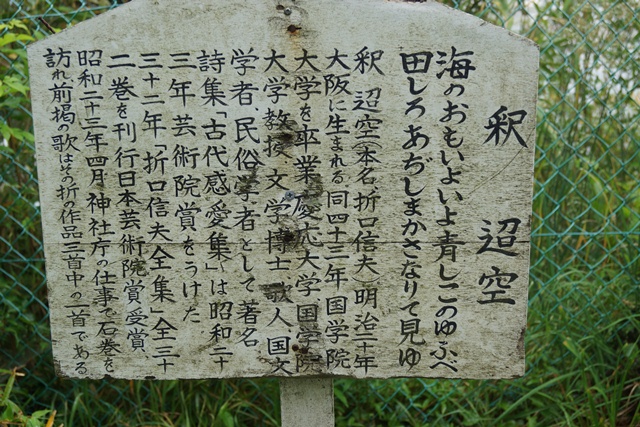 釈 迢空
海のおもいよいよ青しこのゆふべ
田しろあぢしまかさなりて見ゆ
釈 迢空(本名折口信夫)明治二十年
大阪に生まれる 同四十三年国学院
大学を卒業 慶応大学、国学院
大学教授 文学博士 歌人、国文
学者、民俗学者として著名
詩集「古代感愛集」は昭和二十
三年芸術院賞をうけた
三十二年「折口信夫全集」全三十
二巻を刊行日本芸術院賞受賞、
昭和二十三年四月神社庁の仕事で石巻を
訪れ前掲の歌はその折の作品三首中の一首である